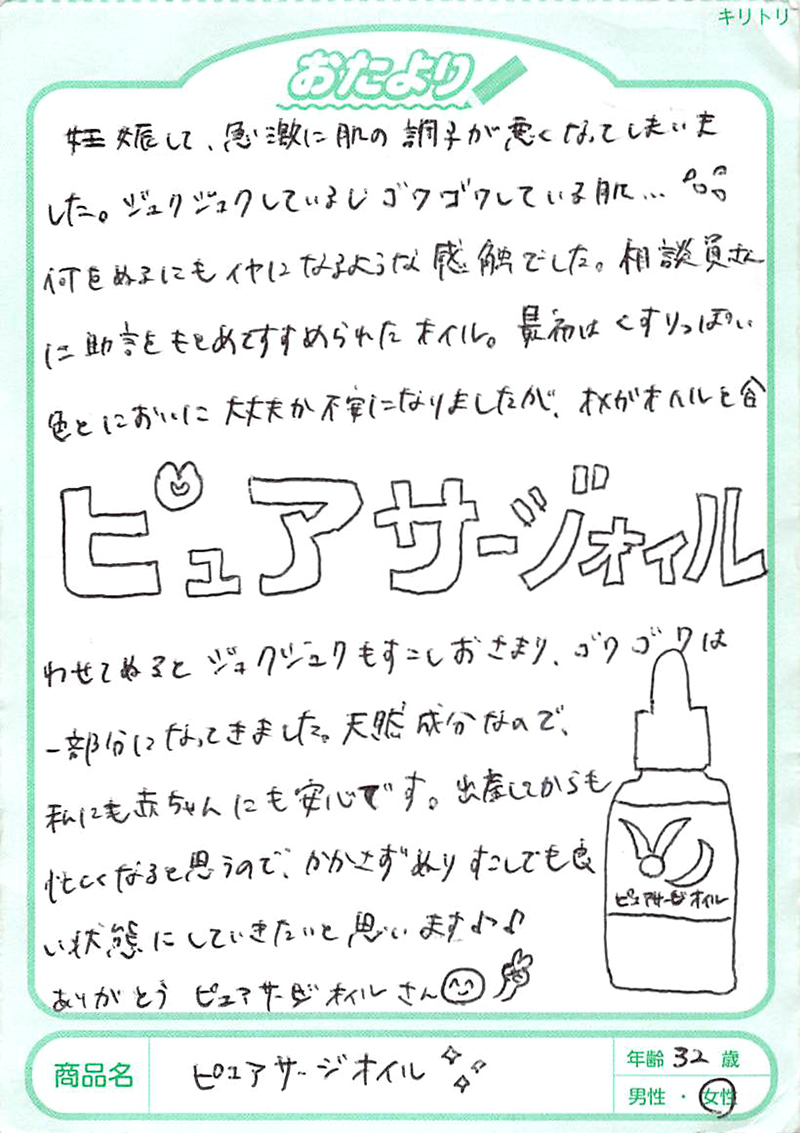 キリトリ
おたより
妊娠して、急激に肌の調子が悪くなってしまいま
した。ジュクジュクしているしゴワゴワしている肌…
何をぬるにもイヤになるような感触でした。相談員さん
に助言をもとめてすすめられたオイル。最初はくすりっぽい
色とにおいに大丈夫か不安になりましたが、オメガオイルと合
ピュアサージオイル
わせてぬるとジュクジュクもすこしおさまり、ゴワゴワは
一部分になってきました。天然成分なので、
私にも赤ちゃんにも安心です。出産してからも
忙しくなると思うので、かかさずぬりすこしでも良
い状態にしていきたいと思います♪♪
ありがとう ピュアサージオイルさん
ピュアサージオイル
商品名 ピュアサージオイル
年齢 32 歳
男性 ・ 女性